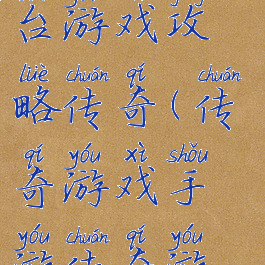 台游戏攻
lüè chuán qí chuán
略传奇(传
qí yóu xì shǒu
奇游戏手
yóu chuán qí yóu
游传奇游